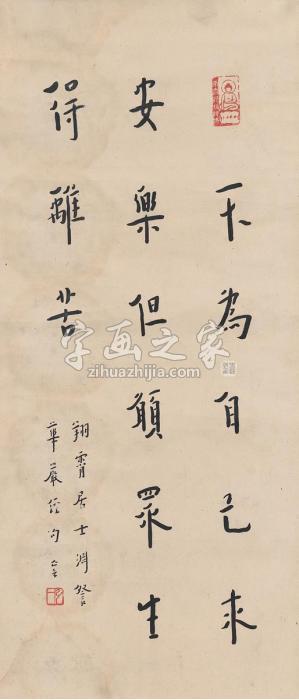 不為自己求
安樂但願眾生
得離苦
翔霄居士淵詧
華嚴經句
字画之家
zihuazhijia.com